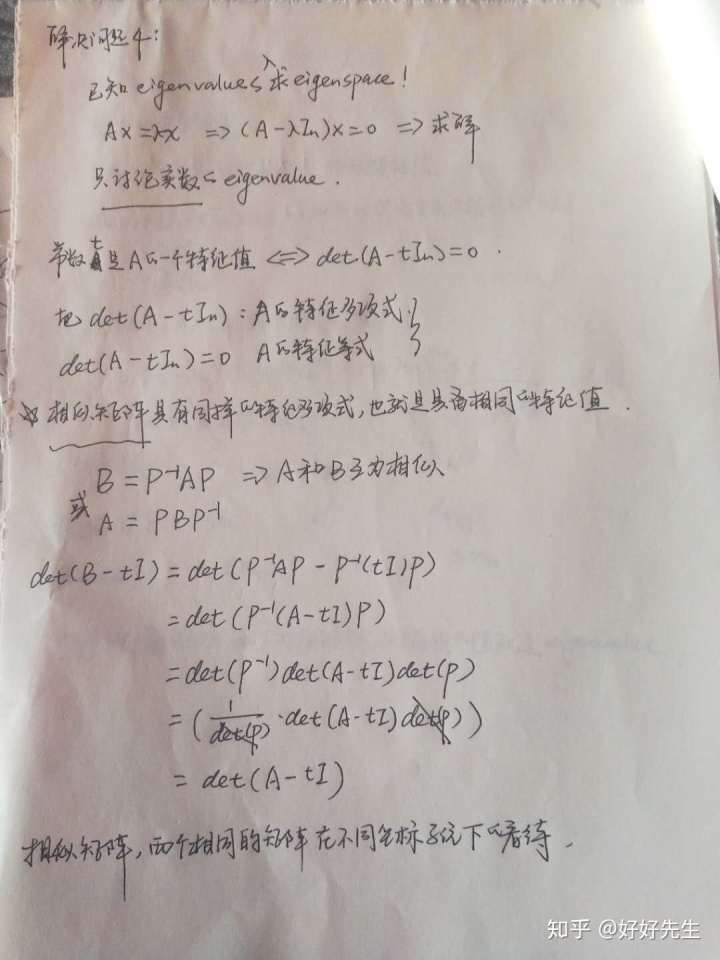 解决问题4:
已知eigenvalues λ 求eigenspace!
Ax=λx ⇒ (A-λIn)x=0 ⇒ 求解
只讨论实数的eigenvalue.
常数t是A的一个特征值 ⟺ det(A-tIn)=0.
把det(A-tIn): A的特征多项式.
det(A-tIn)=0 A的特征等式
☆ 相似矩阵具有同样的特征多项式,也就是具有相同的特征值.
B=P⁻¹AP ⇒ A和B互为相似
或
A=PBP⁻¹
det(B-tI)=det(P⁻¹AP-P⁻¹(tI)P)
=det(P⁻¹(A-tI)P)
=det(P⁻¹)det(A-tI)det(P)
=(1/det(P)·det(A-tI)det(P))
=det(A-tI)
相似矩阵,两个相同的矩阵在不同坐标系统下的看待.
知乎 @好好先生